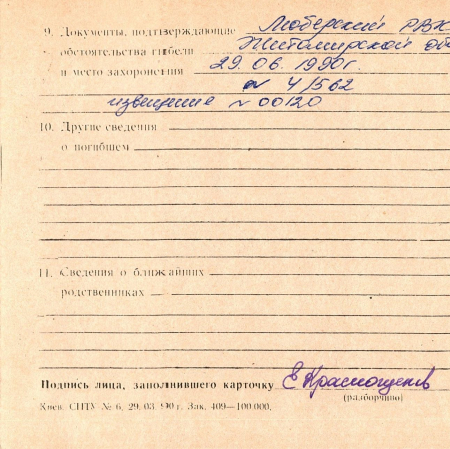 9. Документы, подтверждающие Любарский РВК
обстоятельства гибели Житомирской об
и место захоронения 29.06.1990г.
N 4/562
извещение N 00120
10. Другие сведения
о погибшем
11. Сведения о ближайших
родственниках
Подпись лица, заполнившего карточку
(разборчиво)
Киев. СПТУ № 6, 29.03.90 г. Зак. 409—100.000.